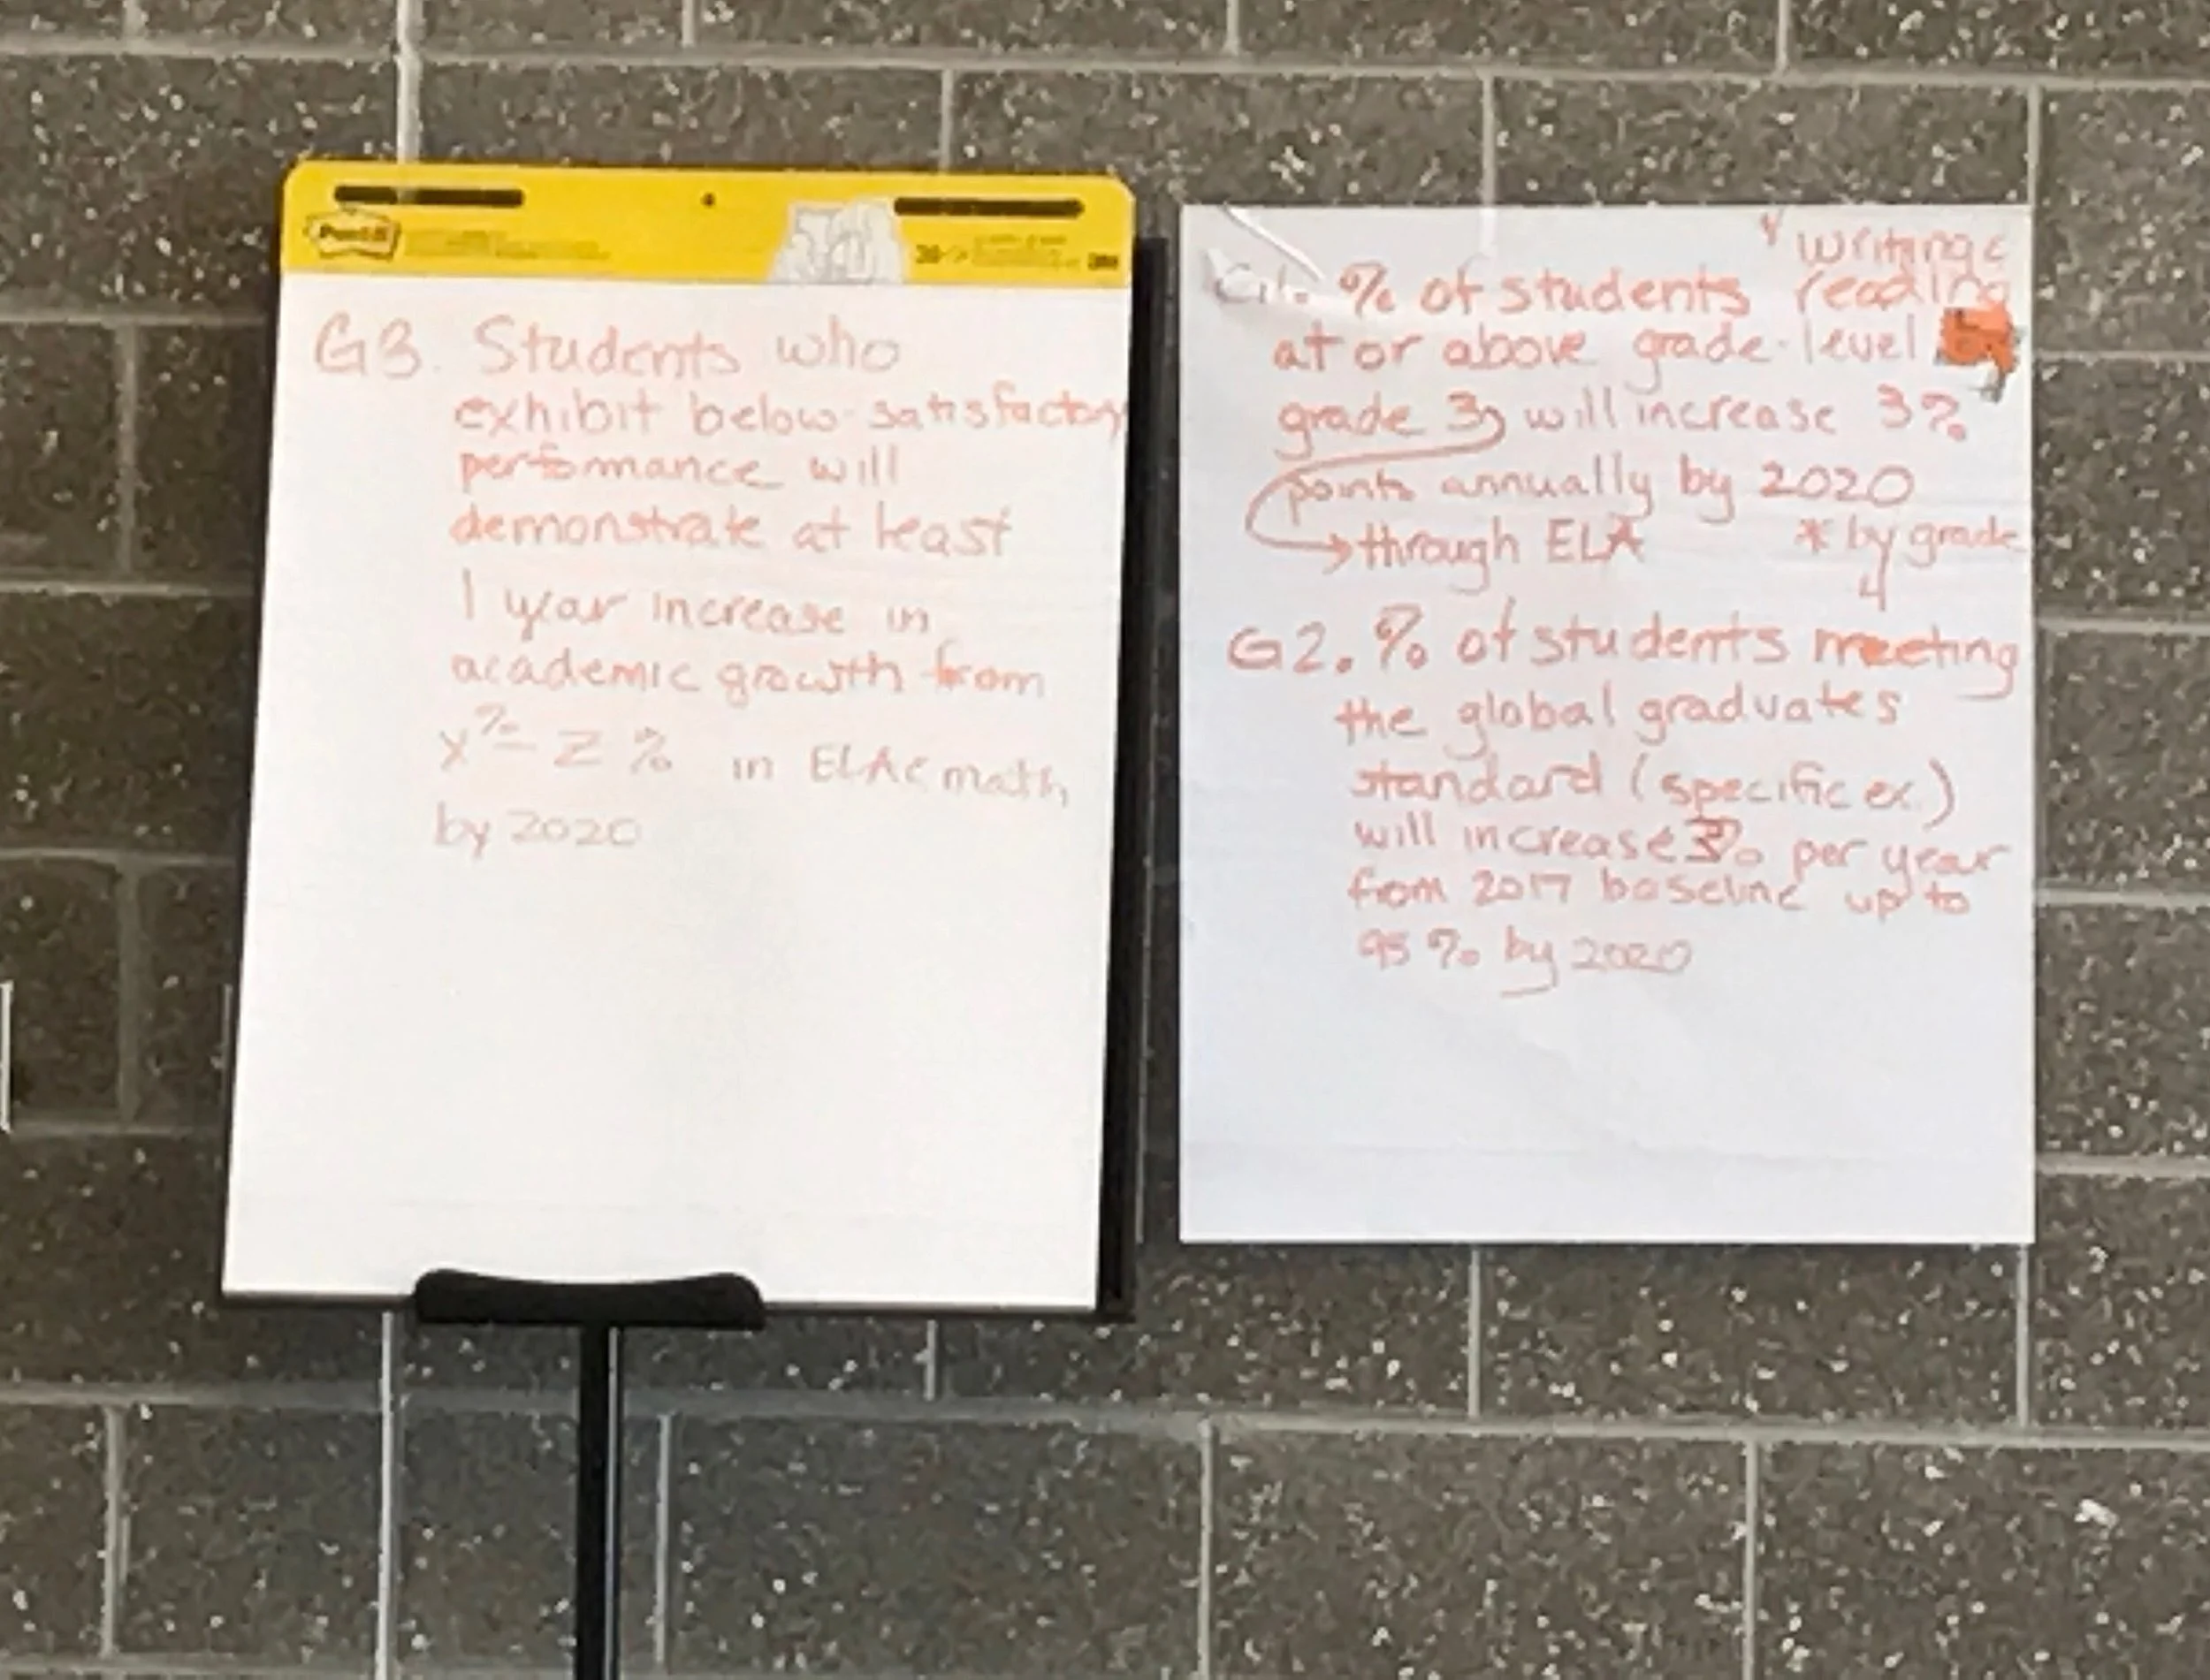 Post-it
G3. Students who
exhibit below satisfactory
performance will
demonstrate at least
1 year increase in
academic growth from
x% - Z % in ELA & math,
by 2020
writing &
G1. % of students reading
at or above grade-level
grade 3, will increase 3%
points annually by 2020
→ through ELA * by grade
4
G2. % of students meeting
the global graduates
standard (specific ex.)
will increase 3% per year
from 2017 baseline up to
95 % by 2020